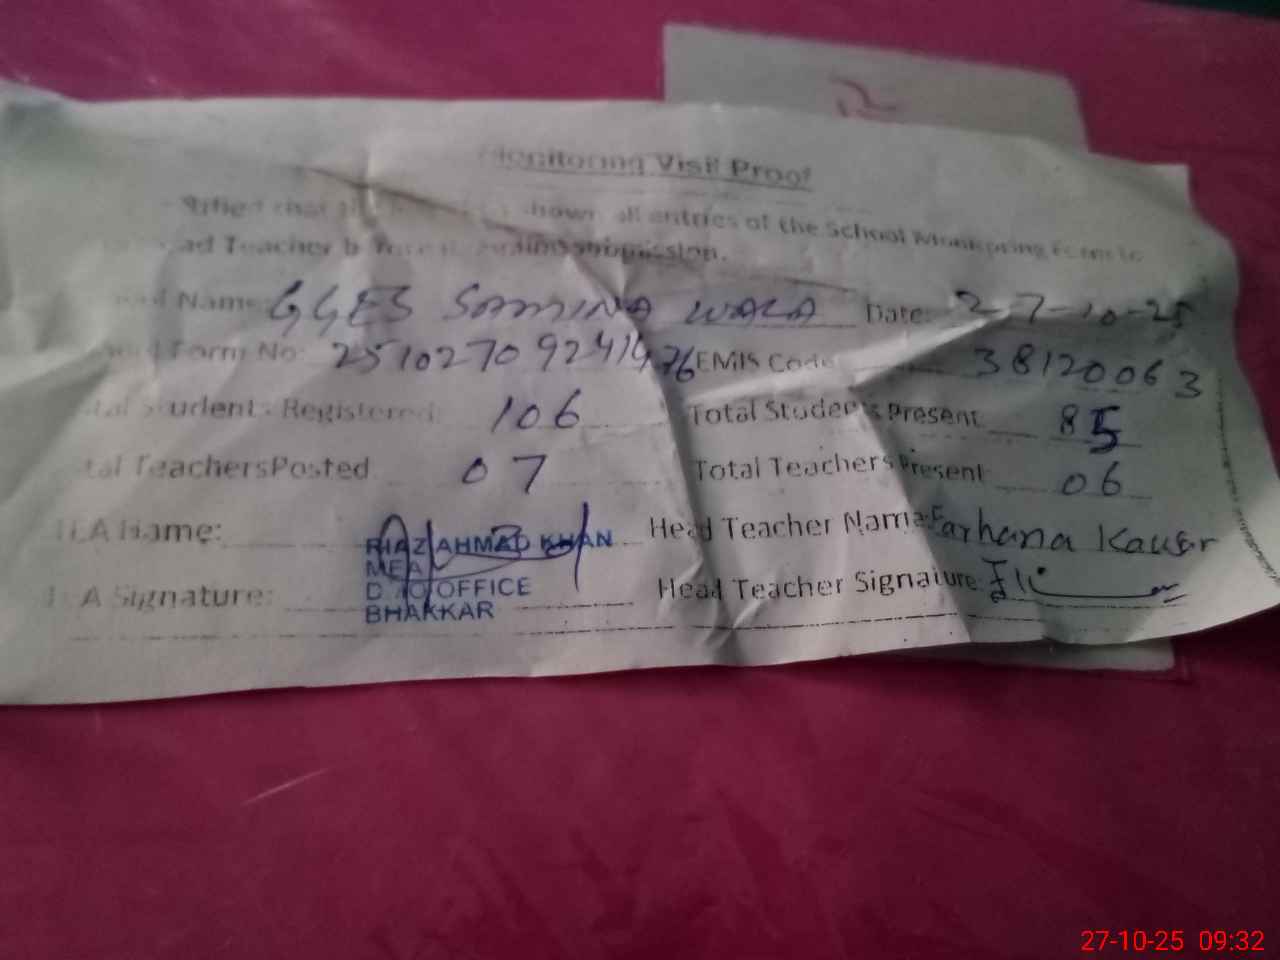 Monitoring Visit Proof
that shown all entries of the School Monitoring Form to
ad Teacher before submission.
Name: GGES SAMINA WALA Date: 27-10-25
Form No: 25102709241976 EMIS Code 38120063
tal Students Registered 106 Total Students Present 85
tal TeachersPosted 07 Total Teachers Present 06
EA Name: RIAZ AHMAD KHAN Head Teacher Name: Farhana Kausar
MEA
EA Signature: OFFICE Head Teacher Signature:
BHAKKAR
27-10-25 09:32